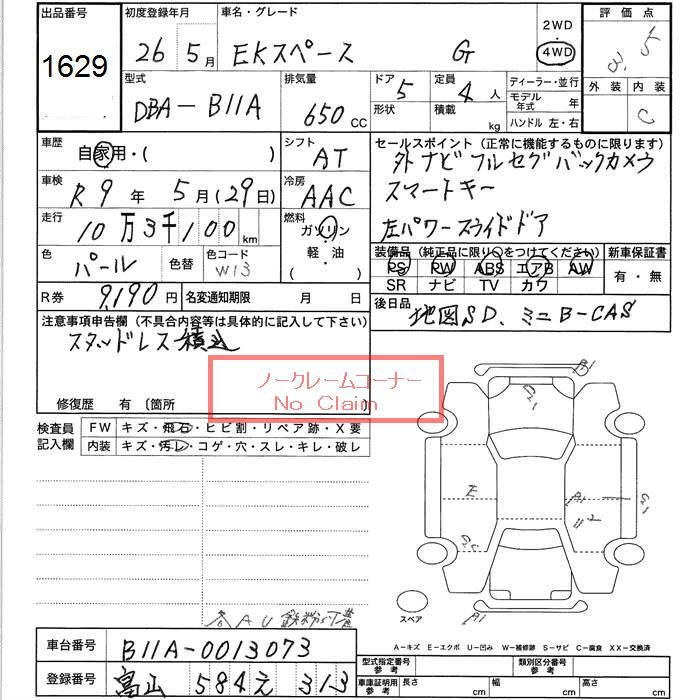 出品番号 初度登録年月 車名・グレード 2WD 評価点
1629 26 5月 EKスペース G 4WD 3.5
外装 内装
C
型式 排気量 ドア 定員 ディーラー・並行
DBA-B11A 650 CC 5 4人 モデル年式 年
形状 積載 kg ハンドル 左・右
車歴 シフト セールスポイント(正常に機能するものに限ります)
自家用・( ) AT 外ナビ フルセグ バックカメラ
車検 冷房 スマートキー
R9年 5月(29日) AAC
走行 燃料 左パワースライドドア
10万3千100km ガソリン
軽・油
( )
色 色替 色コード 装備品(純正品に限り○をつけてください) 新車保証書
パール W13 PS PW ABS エアB AW 有・無
SR ナビ TV カワ
R券 9,190円 名変通知期限 月 日 後日品
地図SD、ミニB-CAS
注意事項申告欄(不具合内容等は具体的に記入して下さい)
スタッドレス積込
ノークレームコーナー
No Claim
修復歴 有〔箇所
検査員記入欄 FW キズ・飛石・ヒビ割・リペア跡・X要
内装 キズ・汚レ・コゲ・穴・スレ・キレ・破レ
B1
E A1
A1
スペア
A-キズ E-エクボ U-凹み W-補修跡 S-サビ C-腐食 XX-交換済
車台番号 B11A-0013073
登録番号 富山 584 え 313
型式指定番号 参考 類別区分番号 参考
車庫証明用 参考 長さ cm 幅 cm 高さ cm